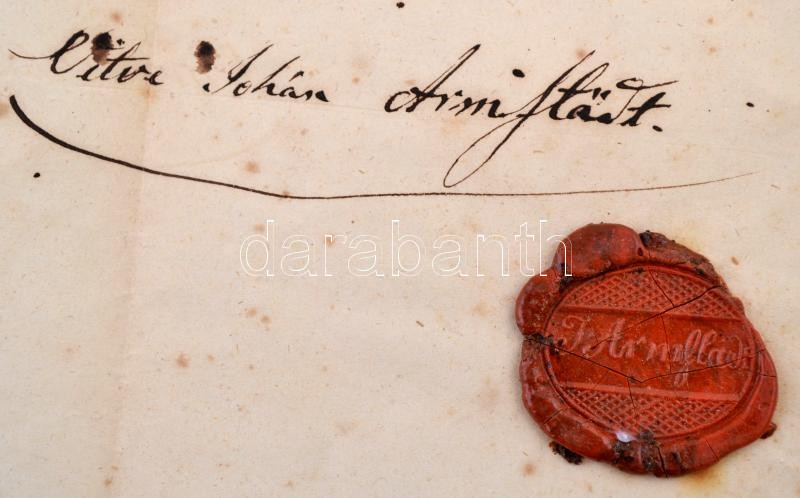 Vitve Johan Armſtädt.
darabanth
J. Armſtädt